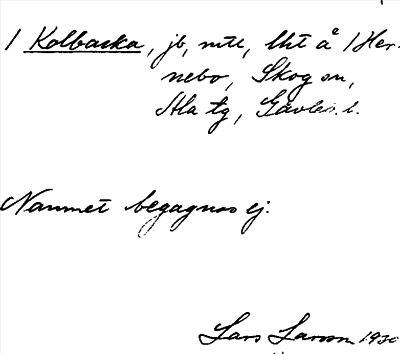 1 Kolbacka, jb, mtl, lht å 1 Her-
nebo, Skog sn,
Ala tg, Gävleb. l.
Namnet begagnas ej.
Lars Larsson 1930